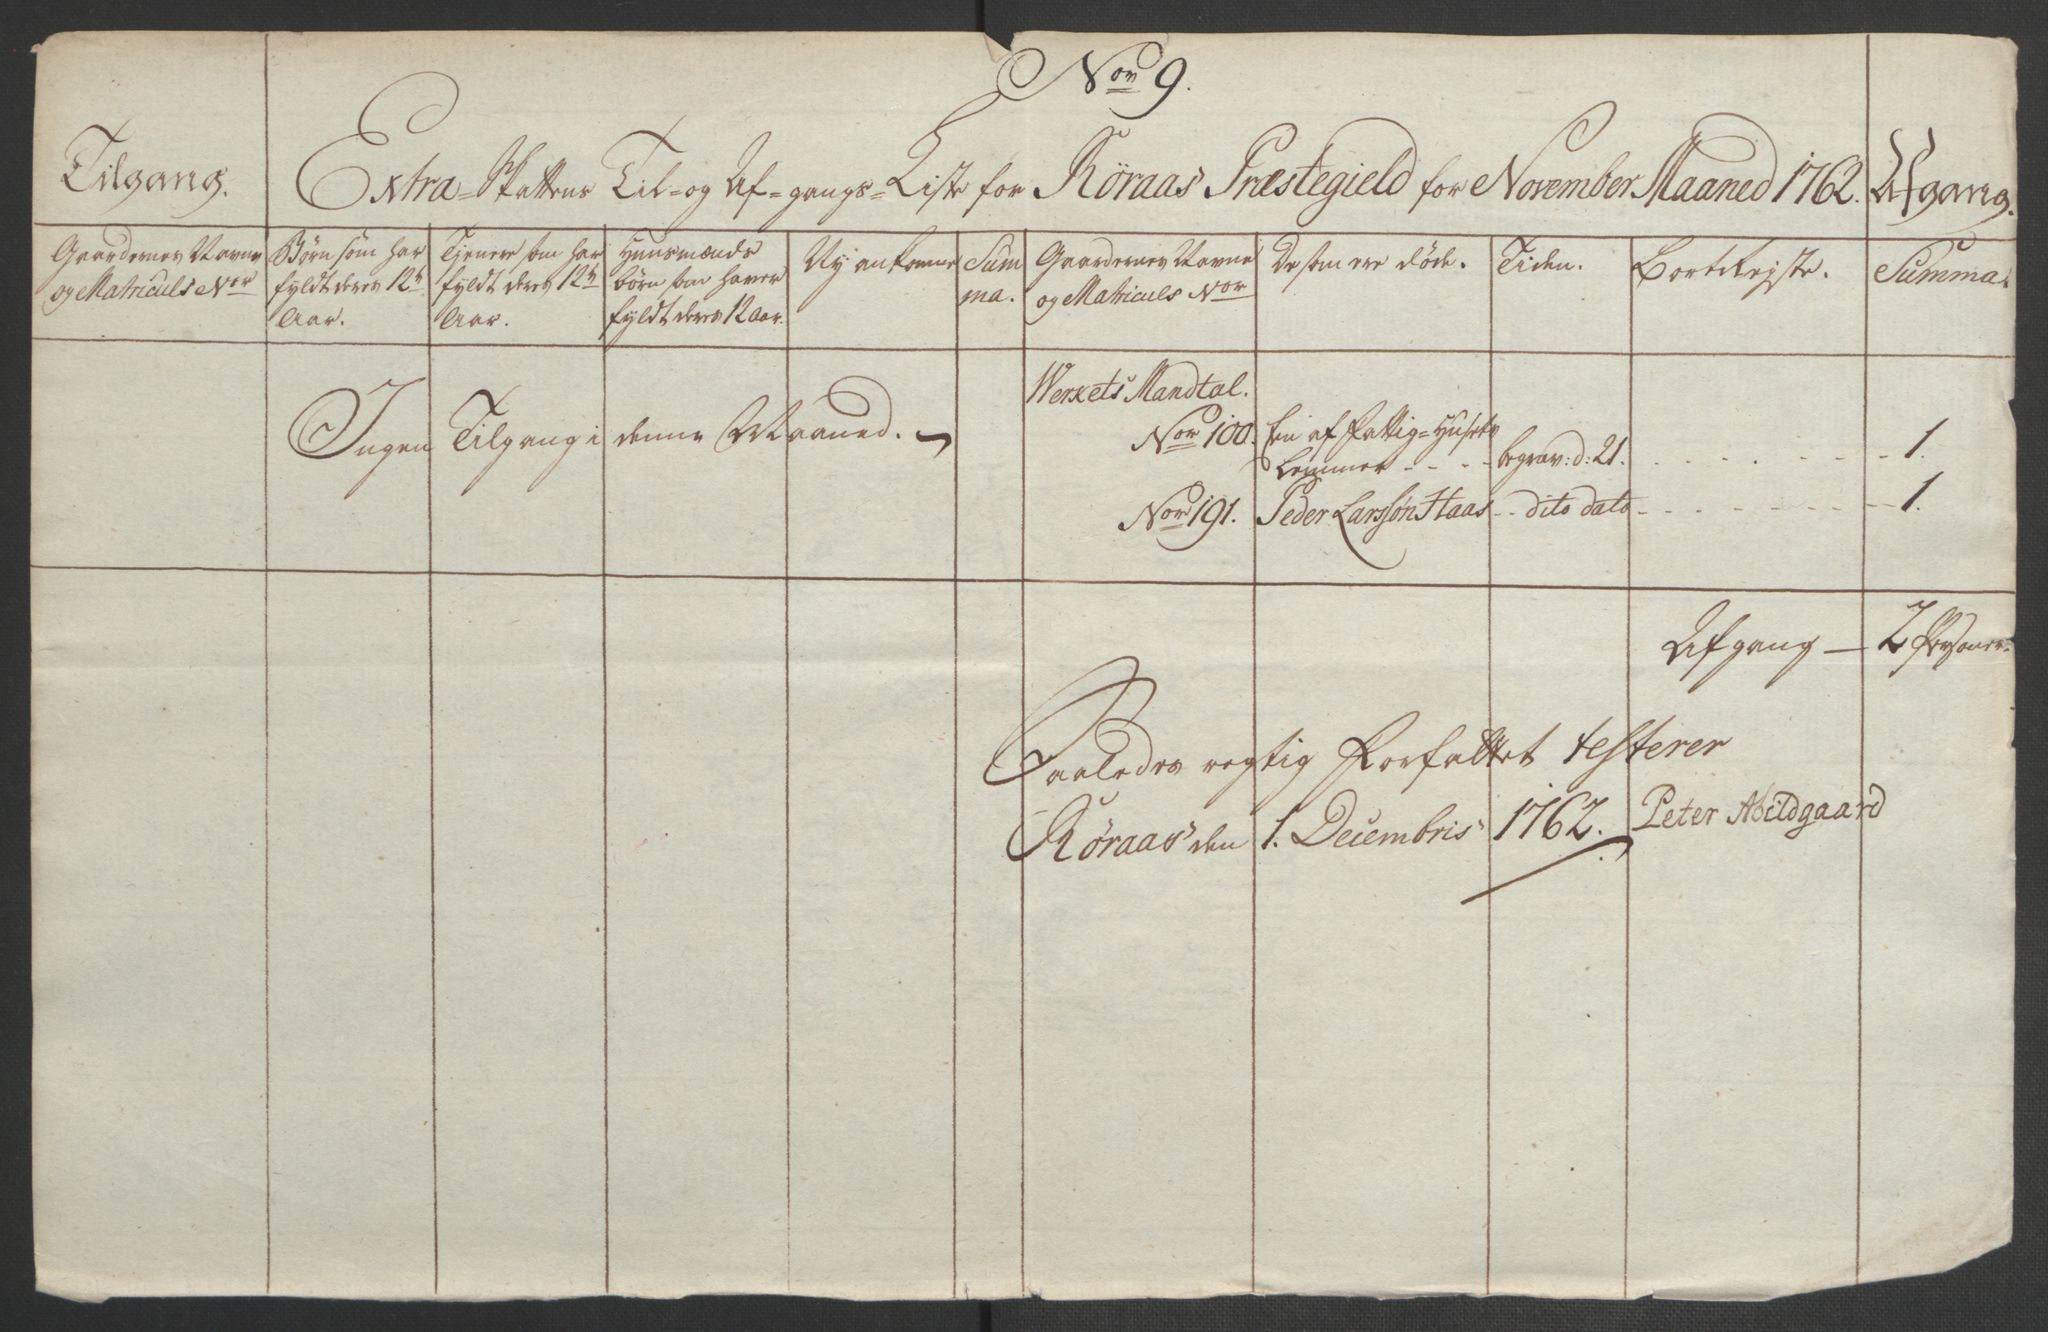 Nor 9.
Tilgang.
Extra-Skattens Til- og Af-gangs-Liste for Röraas Præstegield for November Maaned 1762.
Afgang.
Gaardernes Navne
og Matriculs Nor
Börn som har
fyldt deres 12te
Aar.
Tjenere som har
fyldt deres 12te
Aar.
Huusmænds
börn som haver
fyldt deres 12 Aar.
Ny ankomne
Sum
ma.
Gaardernes Navne
og Matriculs Nor
De som ere döde.
Tiden.
Bortreyste.
Summa.
Ingen Tilgang i denne Maaned.
Werkets Mandtal.
Nor 100. Een af Fattig-Husets
Lemmer - - - - begrav: d: 21. - - - - 1.
Nor 191. Peder Larssøn Haas - - dito dato - - - - 1.
Afgang — 2 Personer.
Saaledes rigtig Forfattet testerer
Röraas den 1. Decembris 1762. Peter Abildgaard